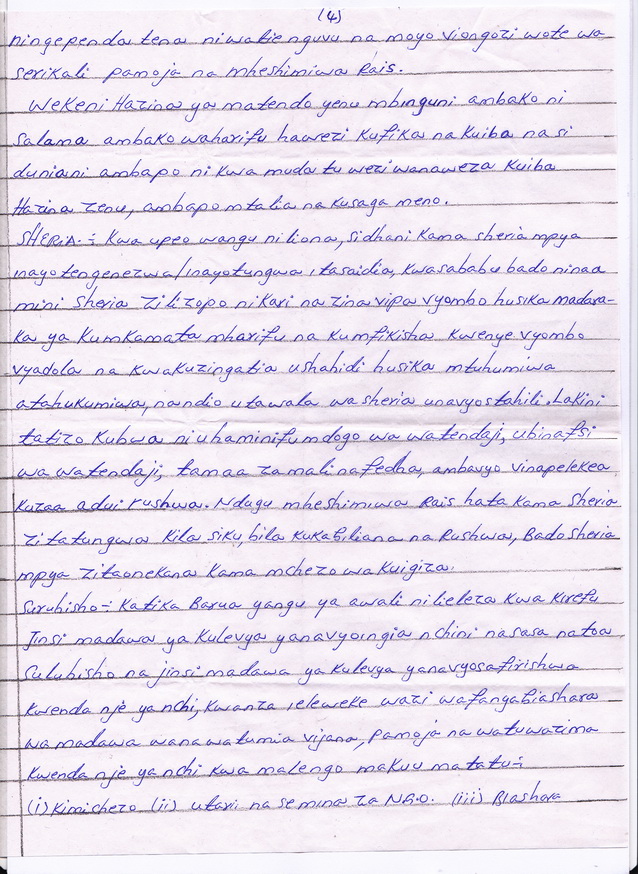 (4)
ningependa tena niwatie nguvu na moyo viongozi wote wa
serikali pamoja na mheshimiwa Rais.
Wekeni Hazina ya matendo yenu mbinguni ambako ni
salama ambako waharifu hawezi kufika na kuiba na si
duniani ambapo ni kwa muda tu wezi wanaweza kuiba
Hazina zenu, ambapo mtalia na kusaga meno.
SHERIA:- Kwa upeo wangu niliona, sidhani kama sheria mpya
inayotengenezwa/inayotungwa itasaidia, kwasababu bado ninaa
mini sheria zilizopo ni kari na zina vipa vyombo husika madara-
ka ya kumkamata mharifu na kumfikisha kwenye vyombo
vyadola na kwakuzingatia ushahidi husika mtuhumiwa
atahukumiwa, nandio utawala wa sheria unavyostahili. Lakini
tatizo kubwa ni uhaminifu mdogo wa watendaji, ubinafsi
wa watendaji, tamaa za mali na fedha, ambavyo vinapelekea
kuzaa adui rushwa. Ndugu mheshimiwa Rais hata kama sheria
zitatungwa kila siku, bila kukabiliana na Rushwa, Bado sheria
mpya zitaonekana kama mchezo wa kuigiza.
Suruhisho:- Katika Barua yangu ya awali nilieleza kwa kirefu
Jinsi madawa ya kulevya yanavyoingia nchini na sasa natoa
Suluhisho na jinsi madawa ya kulevya yanavyosafirishwa
kwenda nje ya nchi, kwanza ieleweke wazi wafanyabiashara
wa madawa wanawatumia vijana, pamoja na watuwazima
kwenda nje ya nchi kwa malengo makuu matatu:-
(i) Kimichezo (ii) utarii na semina za N.G.O. (iii) Biashara